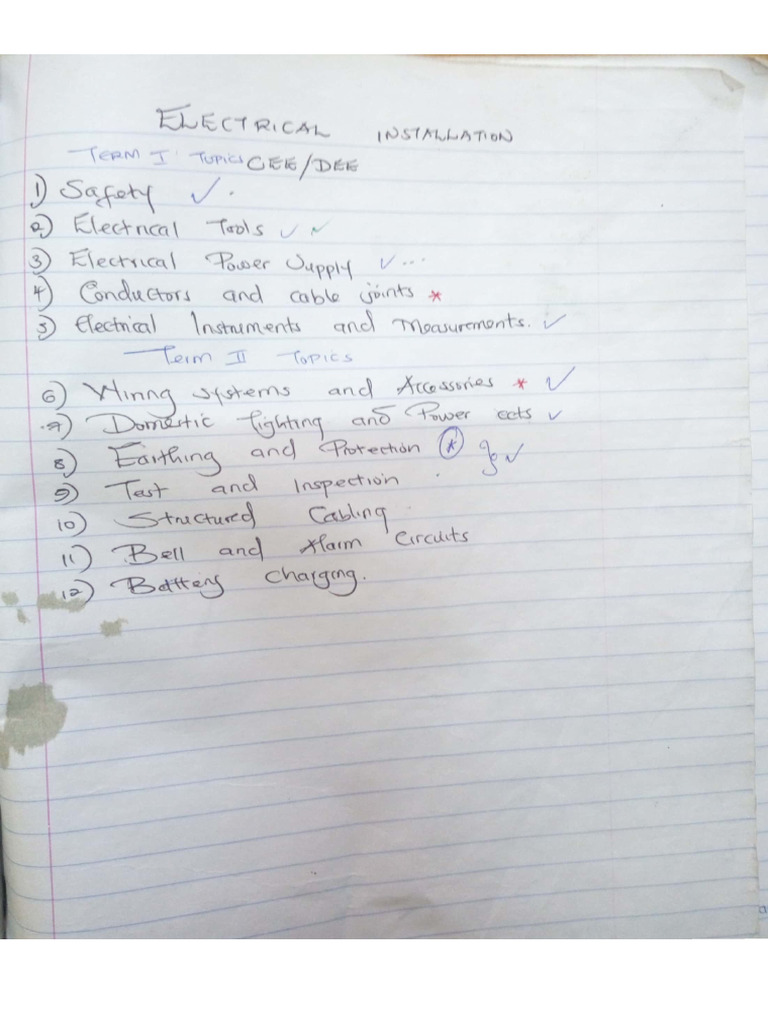 ELECTRICAL INSTALLATION
TERM I TOPICS CEE/DEE
1) Safety ✓.
2) Electrical Tools ✓ ✓
3) Electrical Power Supply ✓...
4) Conductors and cable joints *
5) Electrical Instruments and Measurements. ✓
Term II Topics
6) Wiring systems and Accessories * ✓
7) Domestic lighting and Power ccts ✓
8) Earthing and Protection * ✓
9) Test and Inspection
10) Structured Cabling
11) Bell and Alarm Circuits
12) Battery charging.